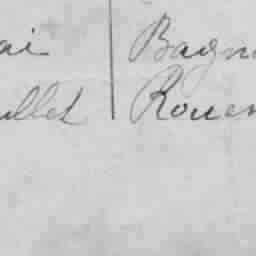 ai Bagn
llet Rouen